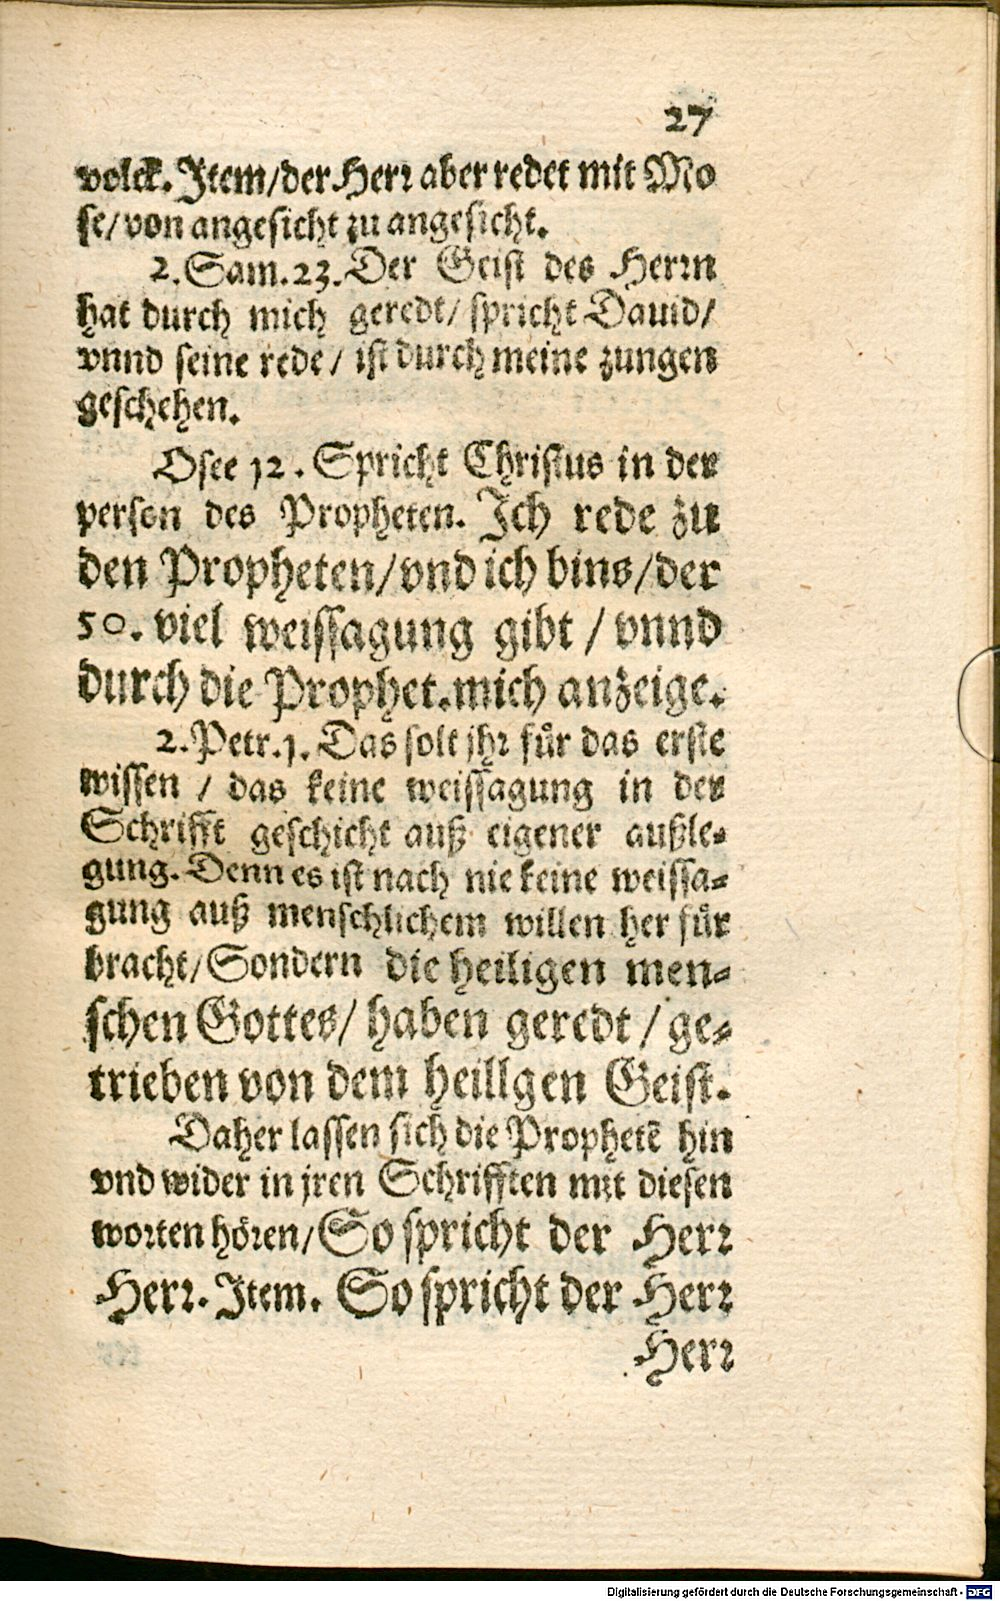 27
volck. Item/der Herr aber redet mit Mo
se/von angesicht zu angesicht.
2. Sam. 23. Der Geist des Herrn
hat durch mich geredt/ spricht Dauid/
vnnd seine rede/ ist durch meine zungen
geschehen.
Osee 12. Spricht Christus in der
person des Propheten. Ich rede zu
den Propheten/vnd ich bins/der
so. viel weissagung gibt / vnnd
durch die Prophet.mich anzeige.
2. Petr. 1. Das solt jhr für das erste
wissen / das keine weissagung in der
Schrifft geschicht auß eigener außle-
gung. Denn es ist nach nie keine weissa-
gung auß menschlichem willen her für
bracht/Sondern die heiligen men-
schen Gottes/ haben geredt / ge-
trieben von dem heillgen Geist.
Daher lassen sich die Prophetē hin
vnd wider in jren Schrifften mit diesen
worten hören/So spricht der Herr
Herr. Item. So spricht der Herr
Herr
Digitalisierung gefördert durch die Deutsche Forschungsgemeinschaft - DFG